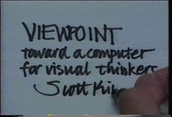 VIEWPOINT
toward a computer
for visual thinkers
Scott Kim